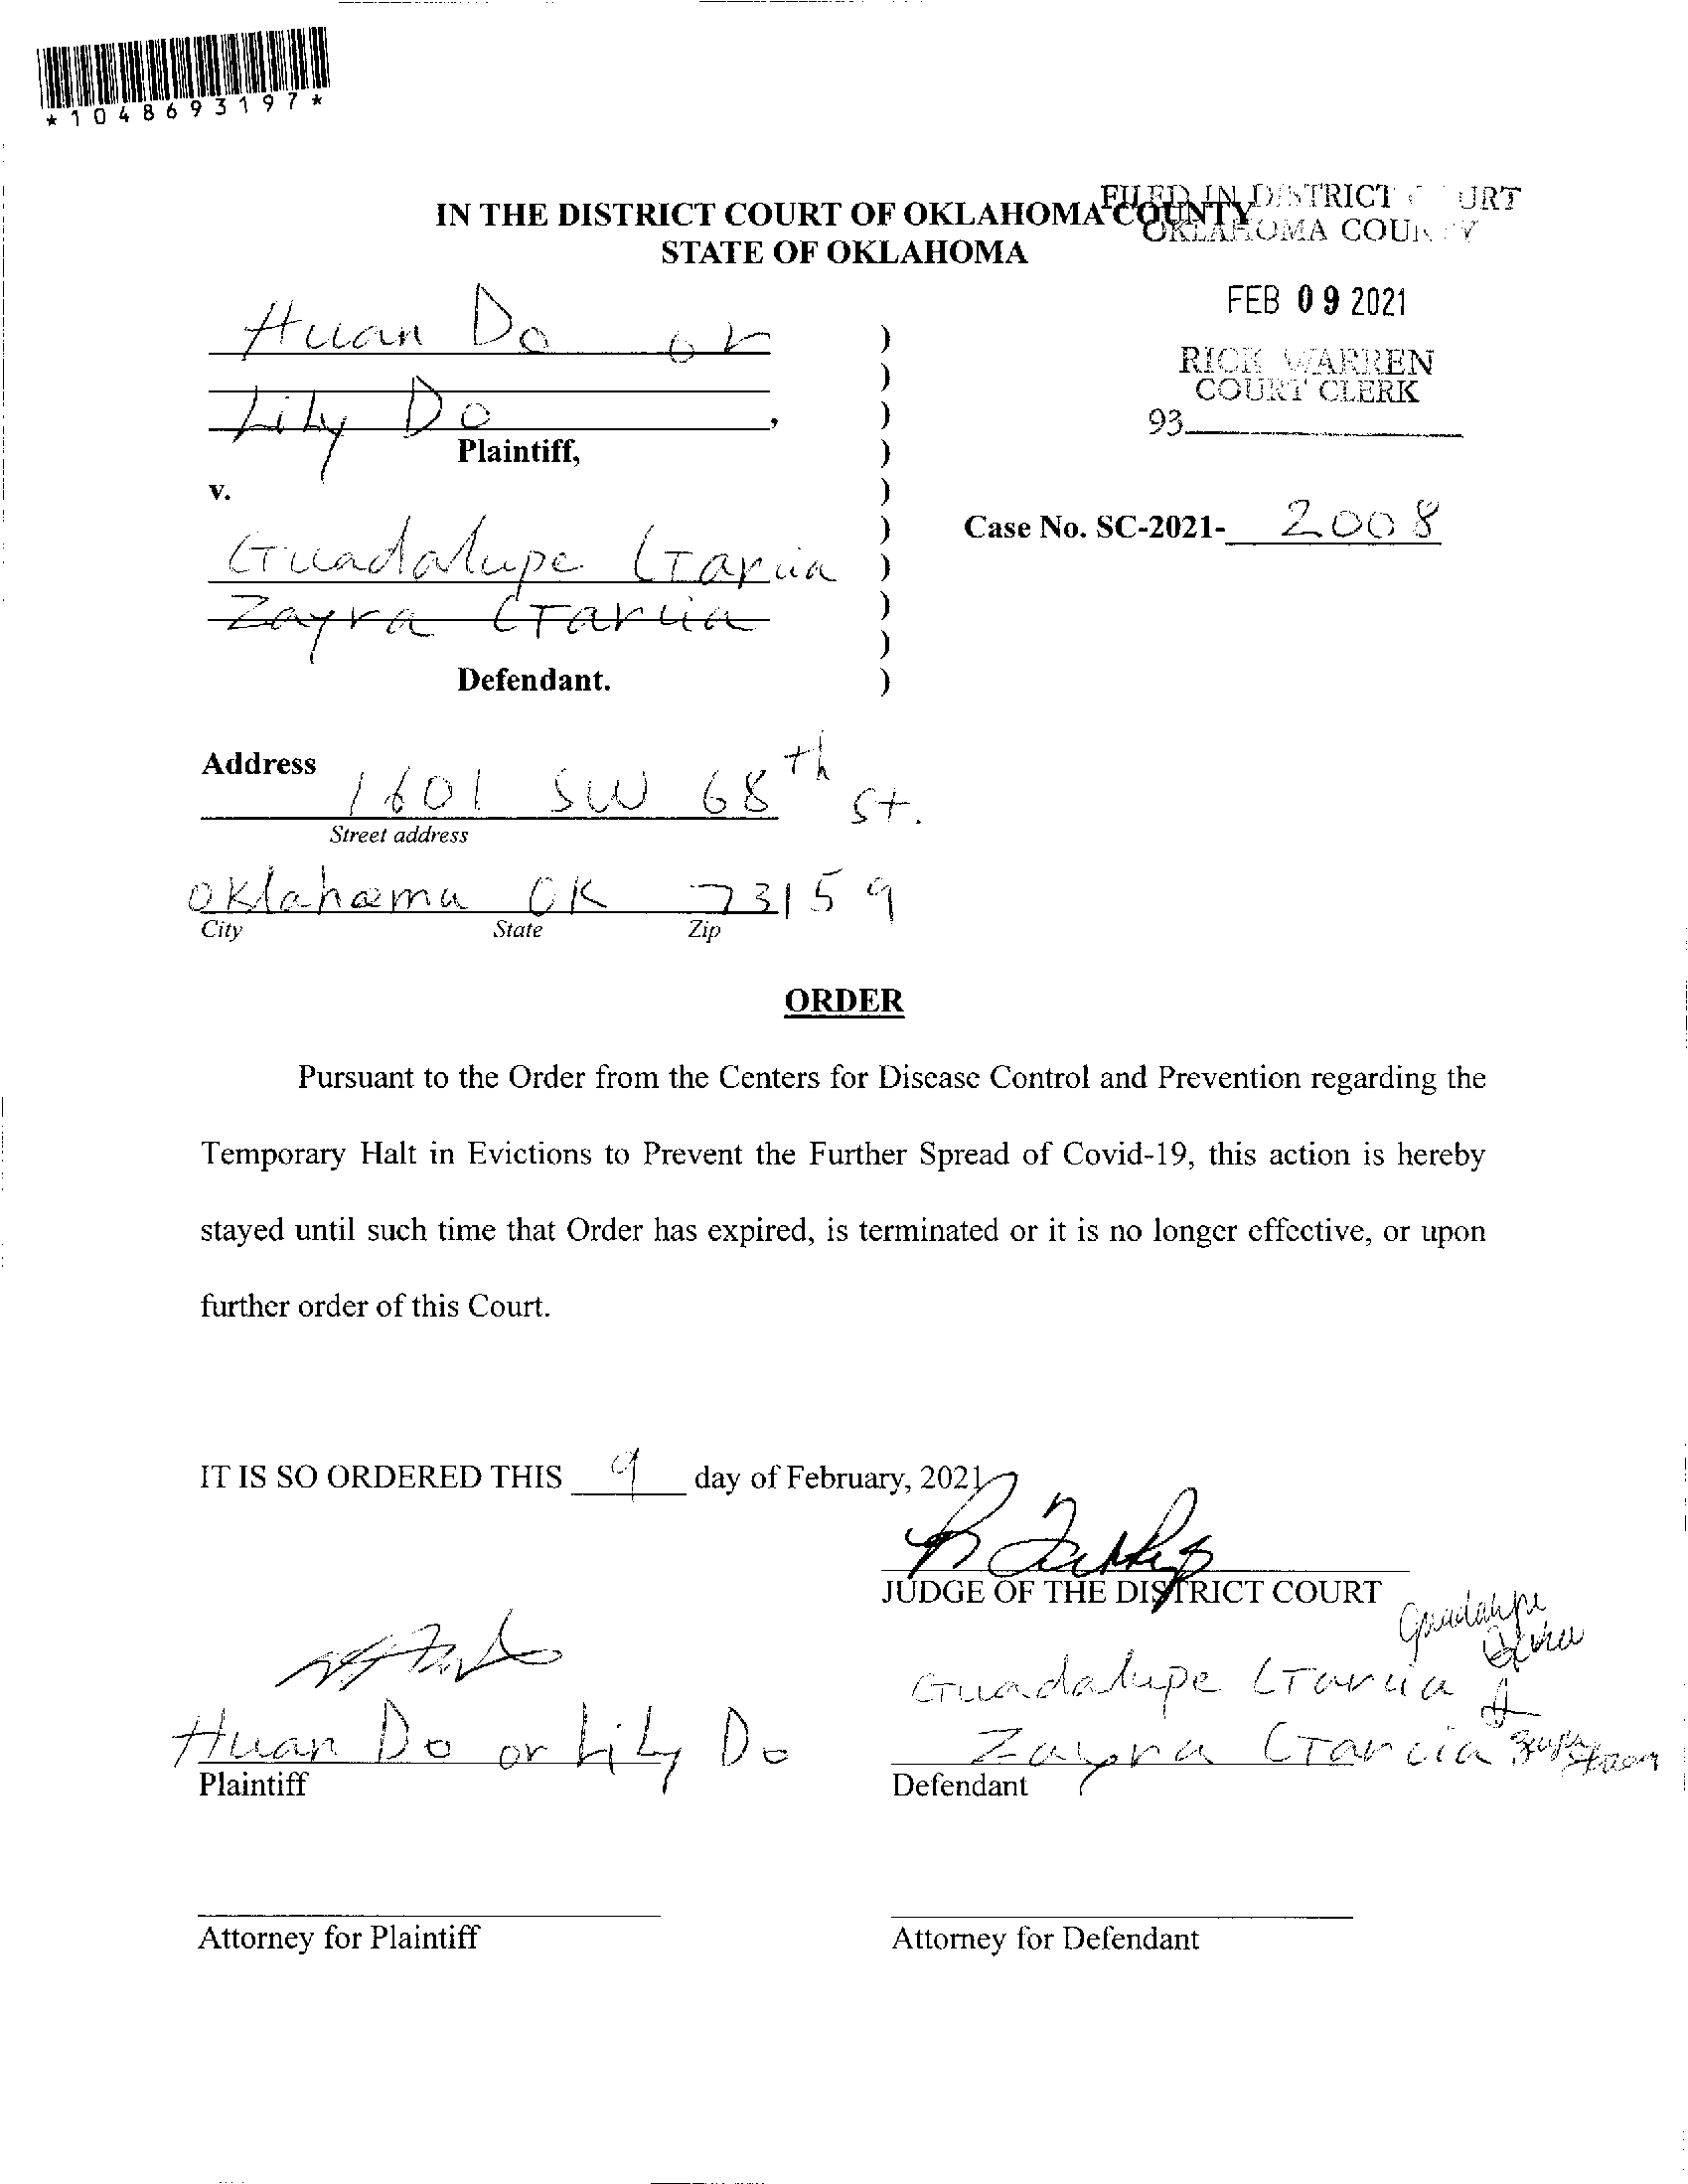 *1048693197*
IN THE DISTRICT COURT OF OKLAHOMA COUNTY
STATE OF OKLAHOMA
FILED IN DISTRICT URT
OKLAHOMA COU Y
FEB 09 2021
RICK WARREN
COURT CLERK
93
Huan Do or
Lily Do ,
Plaintiff,
v.
Case No. SC-2021- 2008
Guadalupe Garcia
Zayra Garcia
Defendant.
)
)
)
)
)
)
)
)
)
)
Address
1601 SW 68th St.
Street address
Oklahoma OK 73159
City State Zip
ORDER
Pursuant to the Order from the Centers for Disease Control and Prevention regarding the
Temporary Halt in Evictions to Prevent the Further Spread of Covid-19, this action is hereby
stayed until such time that Order has expired, is terminated or it is no longer effective, or upon
further order of this Court.
IT IS SO ORDERED THIS 9 day of February, 2021
JUDGE OF THE DISTRICT COURT
Guadalupe
Guadalupe Garcia
Huan Do or Lily Do
Zayra Garcia
Plaintiff
Defendant
Attorney for Plaintiff
Attorney for Defendant